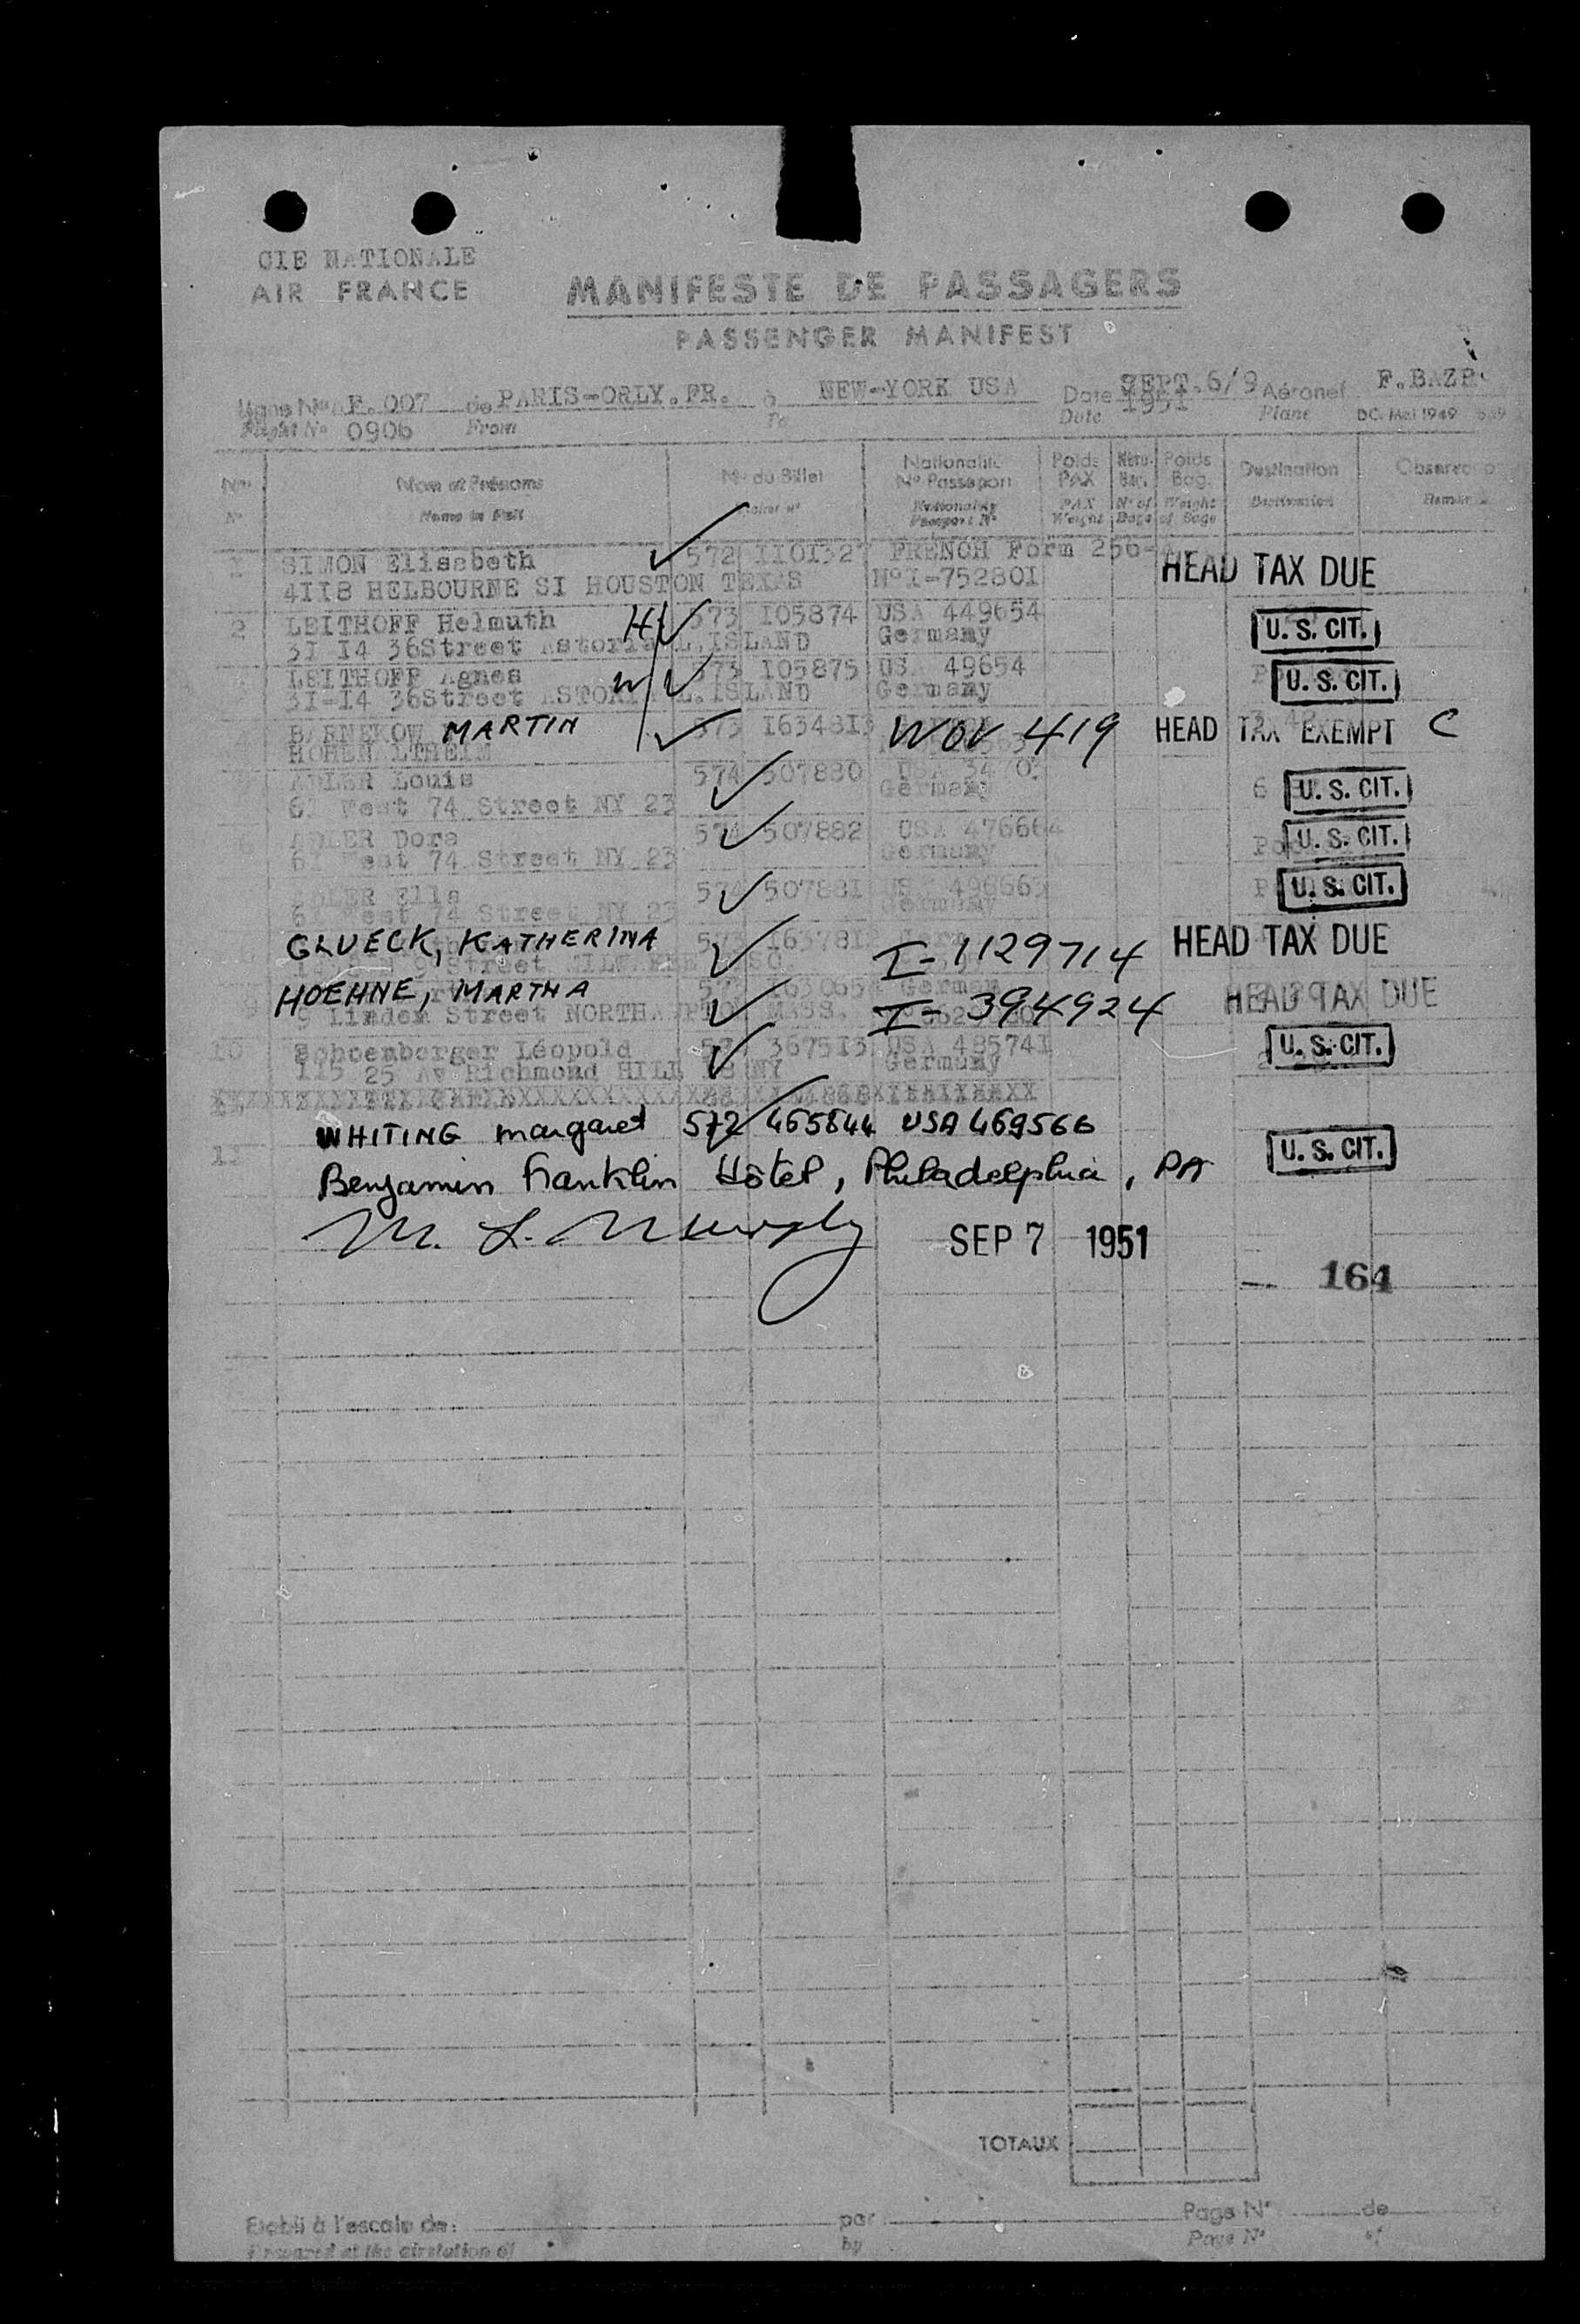 CIE NATIONALE
AIR FRANCE
MANIFESTE DE PASSAGERS
PASSENGER MANIFEST
Ligne No A.F. 007 de PARIS-ORLY.FR. à NEW-YORK USA Date SEPT. 6/9 Aéronef F.BAZR
Flight No 0906 From To Date 1951 Plane DC. Mai 1949
Nos Nom et Prénoms No du Billet Nationalité Poids Nbre Poids Destination
No Name in Full Ticket No No Passeport PAX Bag. Bag. Destination
Nationality PAX No of Weight
Passport No Weight Bags of Bags
1 SIMON Elisabeth 572 1101327 FRENCH Form 256- HEAD TAX DUE
4118 HELBOURNE SI HOUSTON TEXAS No I-752801
2 LEITHOFF Helmuth H 573 105874 USA 449654 U. S. CIT.
31 14 36Street Astoria L.ISLAND Germany
LEITHOFF Agnes W 573 105875 USA 49654 U. S. CIT.
31-14 36Street ASTORIA L.ISLAND Germany
BARNEKOW MARTIN 573 163481 WOV 419 HEAD TAX EXEMPT C
HOHENALTHEIM
ADLER Louis 574 507880 USA U. S. CIT.
61 West 74 Street NY 23 Germany
6 ADLER Dora 574 507882 USA 476664 U. S. CIT.
61 West 74 Street NY 23 Germany
ADLER Ella 574 507881 USA 496663 U. S. CIT.
61 West 74 Street NY 23 Germany
GLUECK, KATHERINA 573 163781 I-1129714 HEAD TAX DUE
Street
HOEHNE, MARTHA 163065 German I-394924 HEAD TAX DUE
9 Linden Street NORTHAMPTON MASS.
10 Schoenberger Léopold 574 367513 USA 485741 U. S. CIT.
115 25 Av Richmond HILL 18 NY Germany
WHITING margaret 572 465844 USA 469566
11 Benjamin Franklin Hôtel, Philadelphia, PA U. S. CIT.
M. L. Murphy SEP 7 1951
164
TOTAUX
Etabli à l'escale de: par Page No de
Prepared at the airstation of by Page No of